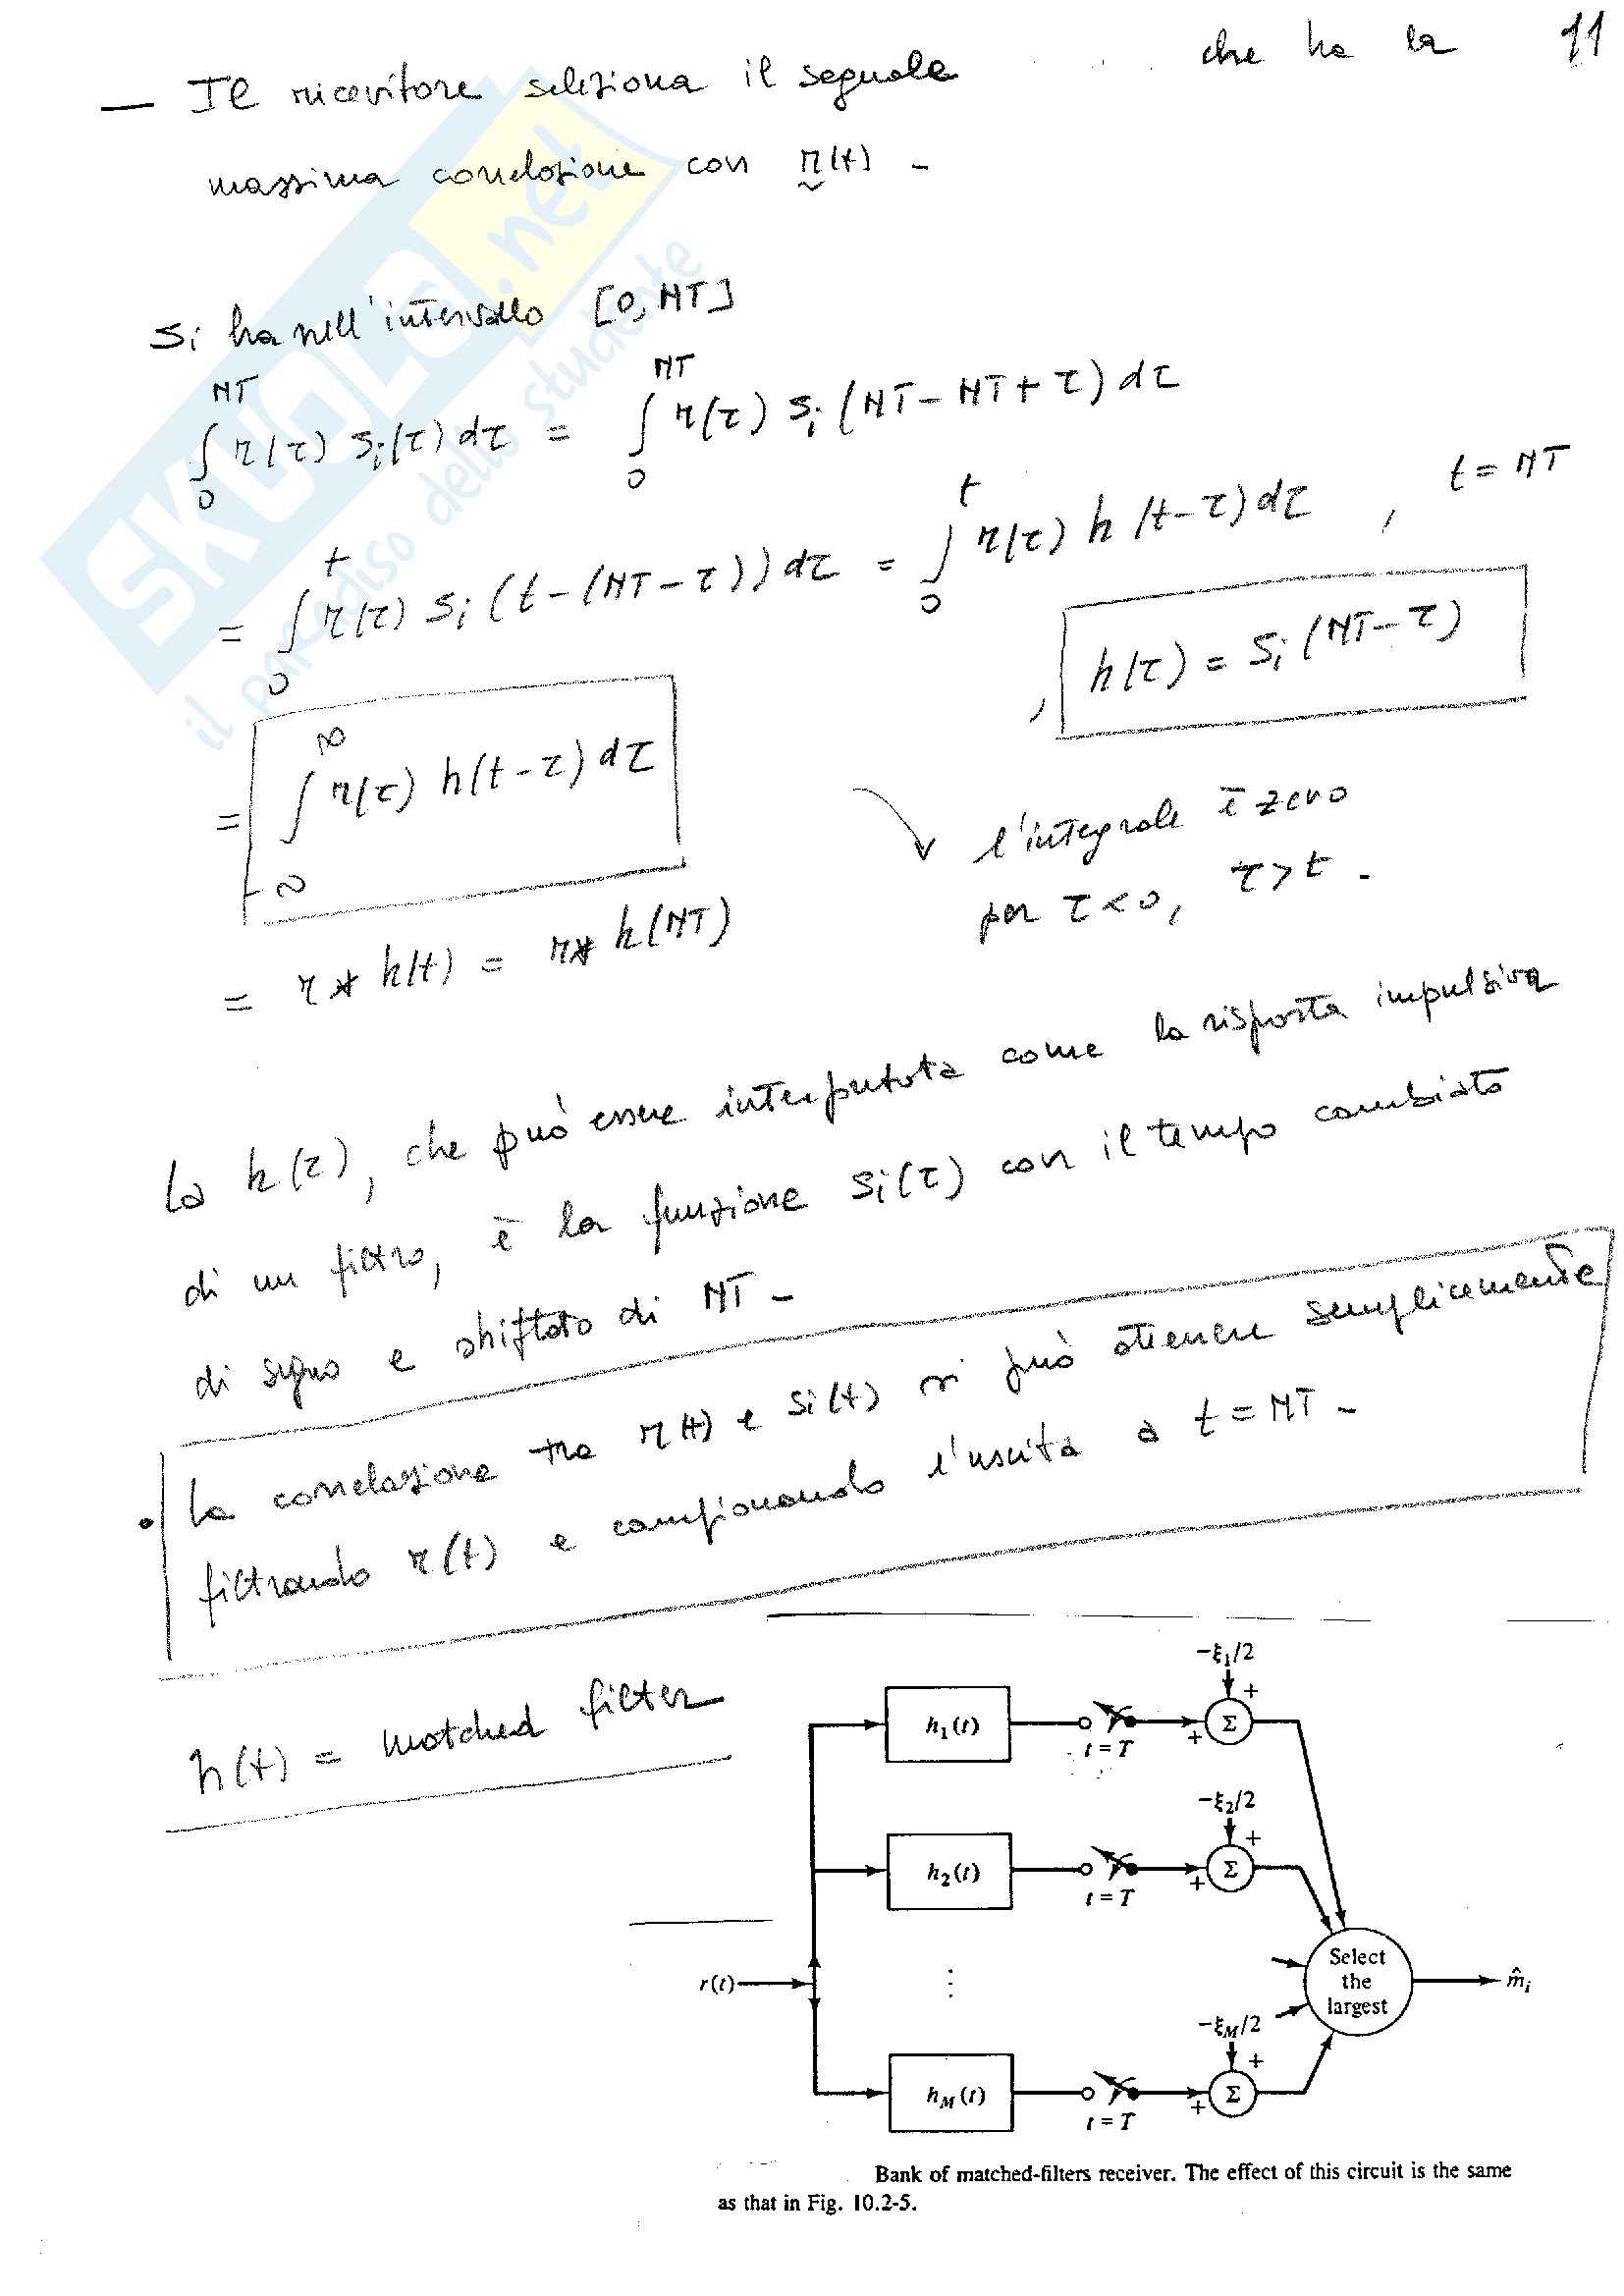 che ha la 11
— Il ricevitore seleziona il segnale
massima correlazione con r(t) -
Si ha nell'intervallo [0, NT]
∫₀^NT r(τ) si(τ) dτ = ∫₀^NT r(τ) si (NT - NT + τ) dτ
= ∫₀^t r(τ) si (t - (NT - τ)) dτ = ∫₀^t r(τ) h (t-τ) dτ , t = NT
, h(τ) = si (NT - τ)
= ∫_-∞^∞ r(τ) h(t-τ) dτ
l'integrale è zero
per τ < 0, τ > t .
= r * h(t) = r * h(NT)
La h(τ), che può essere interpretata come la risposta impulsiva
di un filtro, è la funzione si(τ) con il tempo cambiato
di segno e shiftato di NT -
• La correlazione tra r(t) e si(t) si può ottenere semplicemente
filtrando r(t) e campionando l'uscita a t = NT -
h(t) = matched filter
-ξ₁/2
h₁(t) t = T + Σ +
-ξ₂/2
h₂(t) t = T + Σ +
r(t) ⋮ Select the largest m̂ᵢ
-ξ_M/2
h_M(t) t = T + Σ +
Bank of matched-filters receiver. The effect of this circuit is the same
as that in Fig. 10.2-5.
SKUOLA.net
il paradiso dello studente